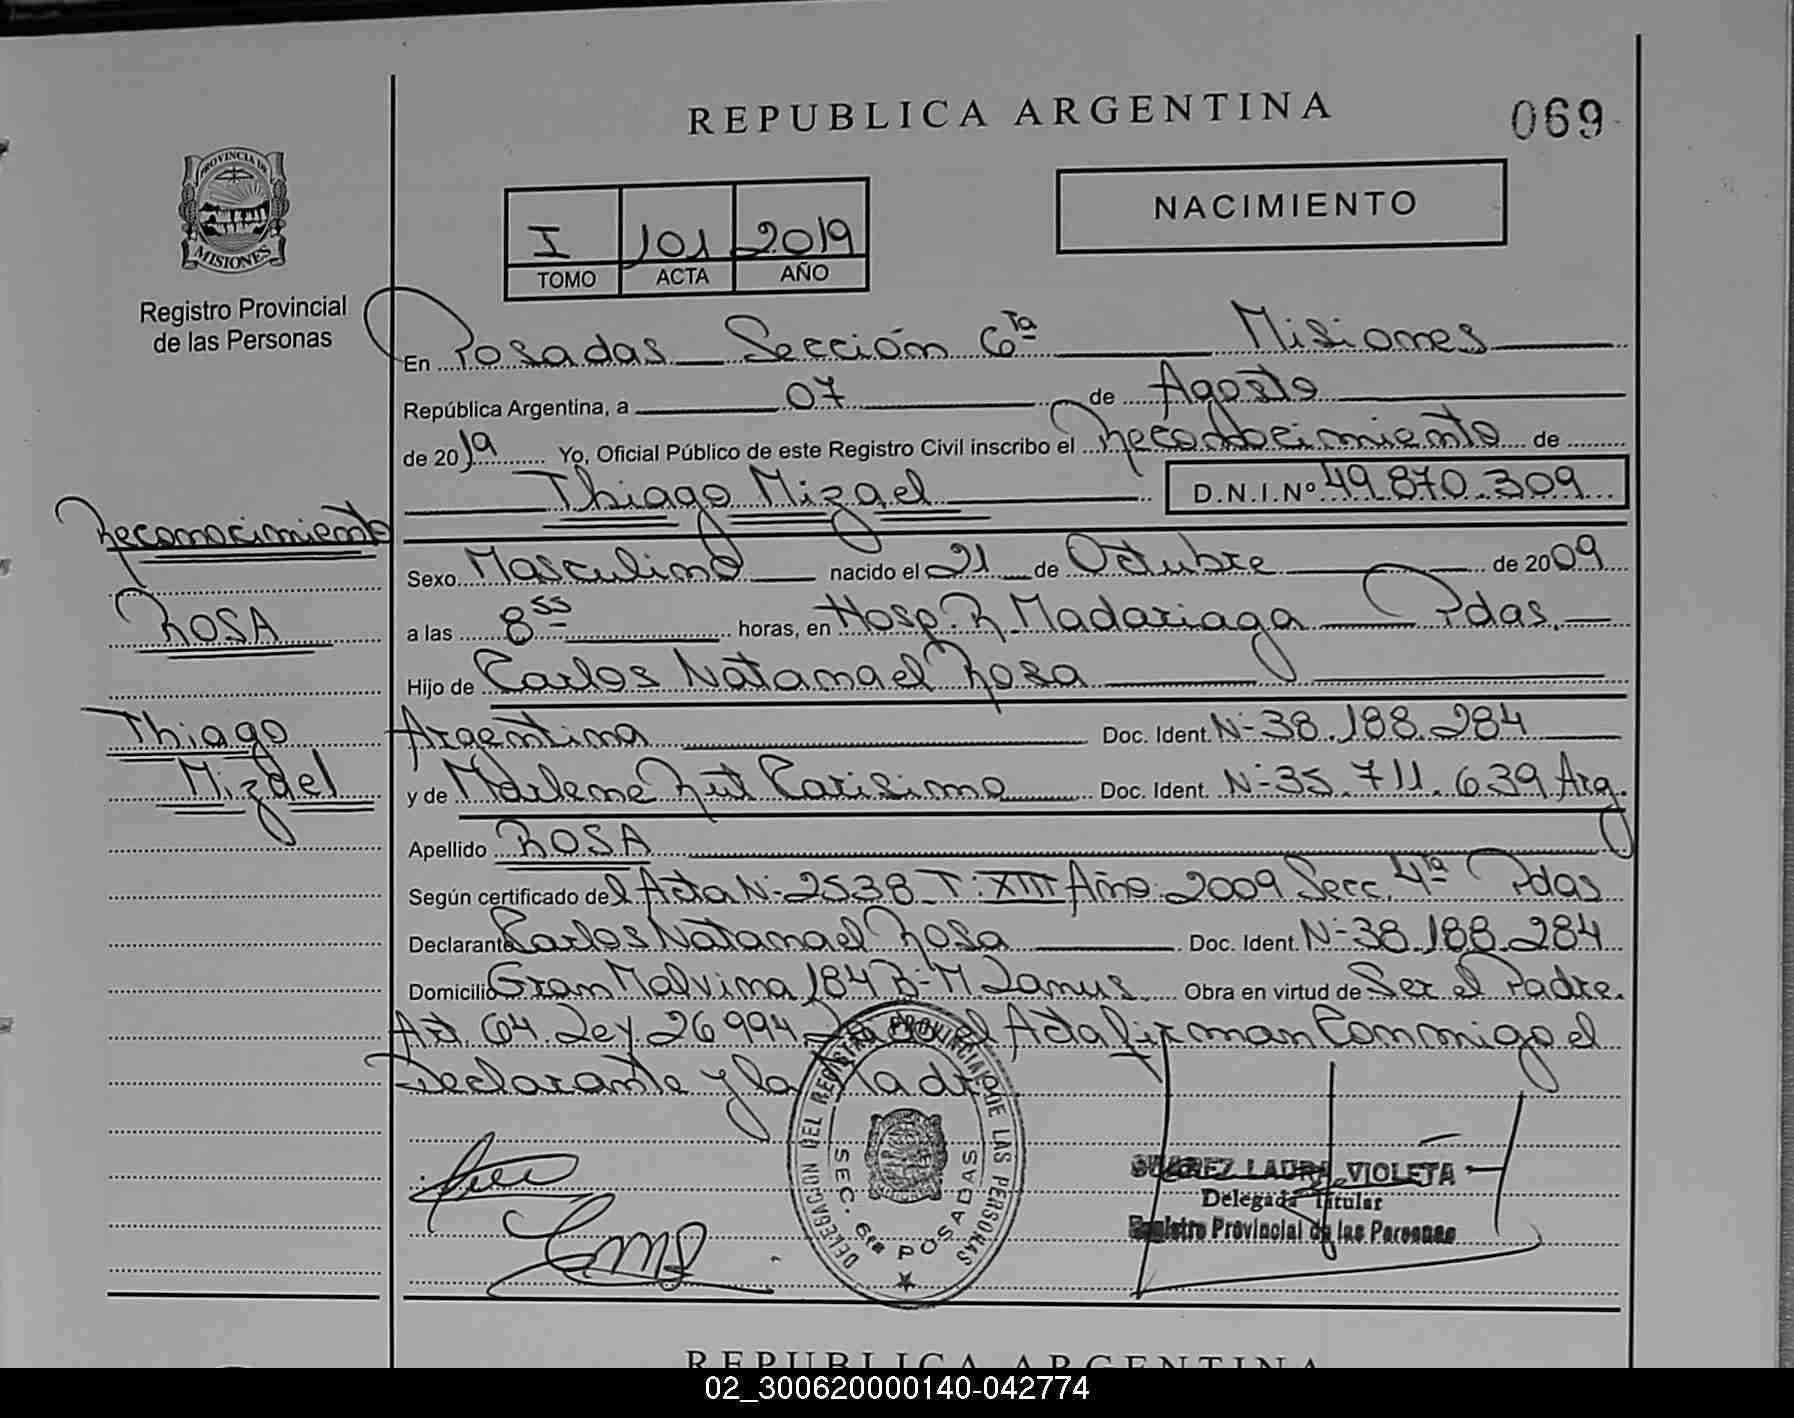 REPUBLICA ARGENTINA
069
PROVINCIA DE
MISIONES
Registro Provincial
de las Personas
NACIMIENTO
I 101 2019
TOMO ACTA AÑO
En Posadas Sección 6ta Misiones
República Argentina, a 07 de Agosto
de 2019 Yo, Oficial Público de este Registro Civil inscribo el Reconocimiento de
Thiago Mizael D.N.I.Nº 49.870.309
Reconocimiento
ROSA
Thiago
Mizael
Sexo Masculino nacido el 21 de Octubre de 2009
a las 8 55 horas, en Hosp. R. Madariaga Pdas.
Hijo de Carlos Natanael Rosa
Argentina Doc. Ident. Nº 38.188.284
y de Marlene Rut Carisimo Doc. Ident. Nº 35.711.639 Arg.
Apellido ROSA
Según certificado del Acta Nº 2538 T: XIII Año: 2009 Secc. 4ta Pdas
Declarante Carlos Natanael Rosa Doc. Ident. Nº 38.188.284
Domicilio Gran Malvina 184 Bº M. Lanus Obra en virtud de Ser el Padre.
Art. 64 Ley 26994 el Acta firman Conmigo el
Declarante y la Madre
DELEGACION DEL REGISTRO PROVINCIAL DE LAS PERSONAS
SEC. 6ta POSADAS
SUAREZ LAURA VIOLETA
Delegada Titular
Registro Provincial de las Personas
REPUBLICA ARGENTINA
02_300620000140-042774